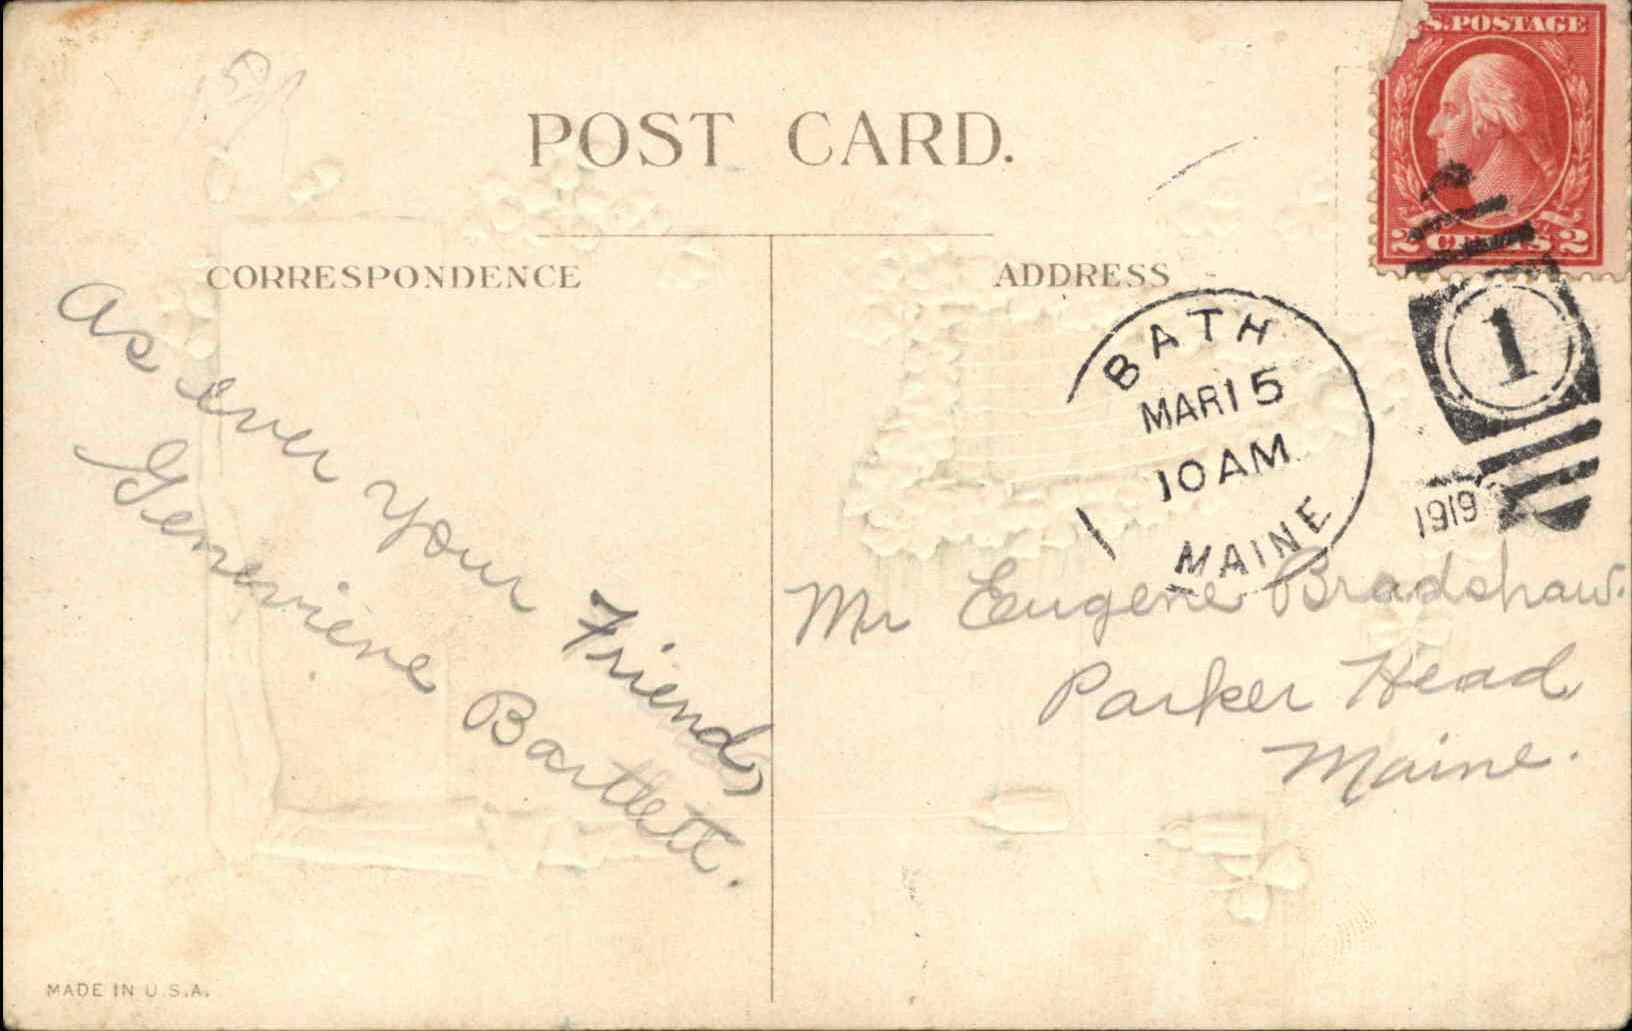 POST CARD.
CORRESPONDENCE
ADDRESS
S. POSTAGE
2 CENTS 2
BATH
MAR 15
10 AM
MAINE
1
1919
As ever your Friend,
Genevieve Bartlett.
Mr Eugene Bradshaw.
Parker Head
Maine.
MADE IN U.S.A.